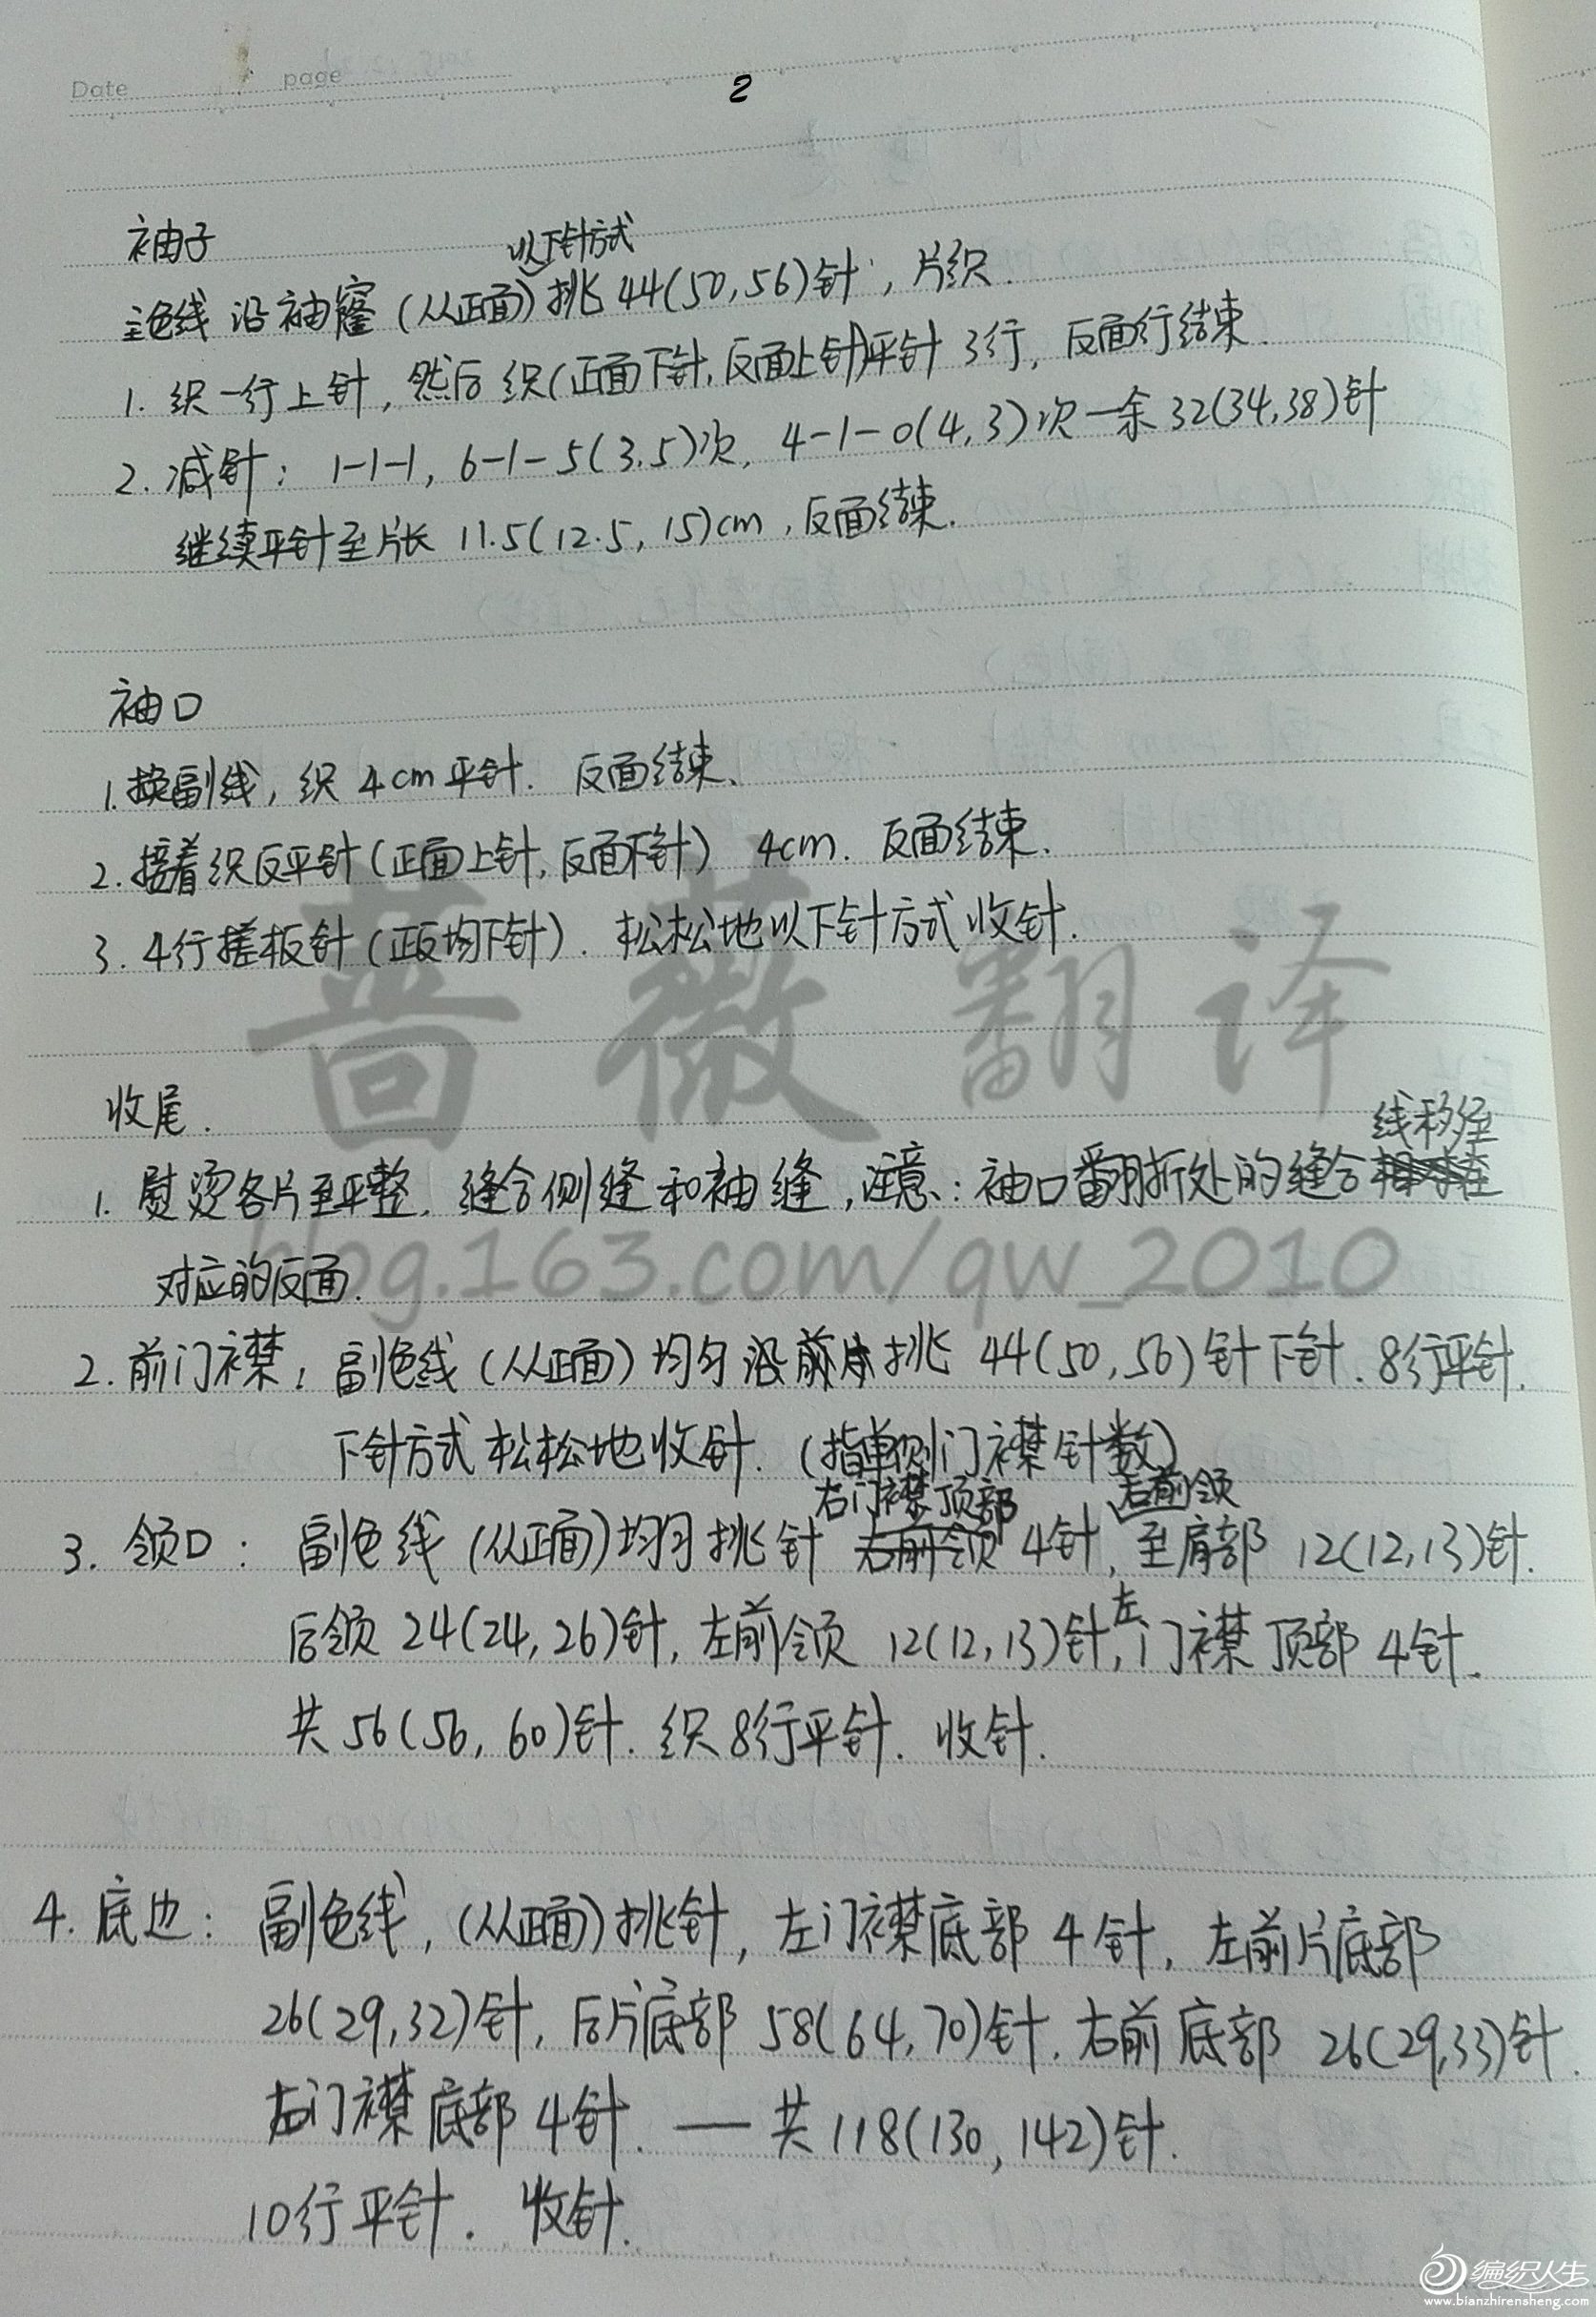 Date page
2
袖子
以下针方式
主色线 沿袖窿(从正面)挑44(50,56)针,片织.
1. 织一行上针,然后织(正面下针,反面上针)平针3行,反面行结束.
2. 减针: 1-1-1, 6-1-5(3,5)次, 4-1-0(4,3)次—余32(34,38)针
继续平针至片长 11.5(12.5, 15)cm,反面结束.
袖口
1.换副线,织4cm平针. 反面结束、
2.接着织反平针(正面上针,反面下针) 4cm. 反面结束.
3. 4行搓板针(正反均下针). 松松地以下针方式收针.
蔷薇翻译
收尾.
线移至
1. 熨烫各片至平整. 缝合侧缝和袖缝,注意:袖口翻折处的缝合
对应的反面.
blog.163.com/qw_2010
2. 前门襟: 副色线(从正面)均匀沿前片挑 44(50,56)针下针. 8行平针.
下针方式松松地收针. (指单侧门襟针数)
右门襟顶部 右前领
3. 领口: 副色线(从正面)均匀挑针 右前领 4针, 至肩部 12(12,13)针.
后领 24(24,26)针, 左前领 12(12,13)针,左门襟顶部 4针.
共56(56,60)针. 织8行平针. 收针.
4. 底边: 副色线,(从正面)挑针, 左门襟底部 4针, 左前片底部
26(29,32)针, 后片底部 58(64,70)针. 右前底部 26(29,33)针.
右门襟底部 4针. — 共118(130,142)针.
10行平针. 收针.
编织人生
www.bianzhirensheng.com